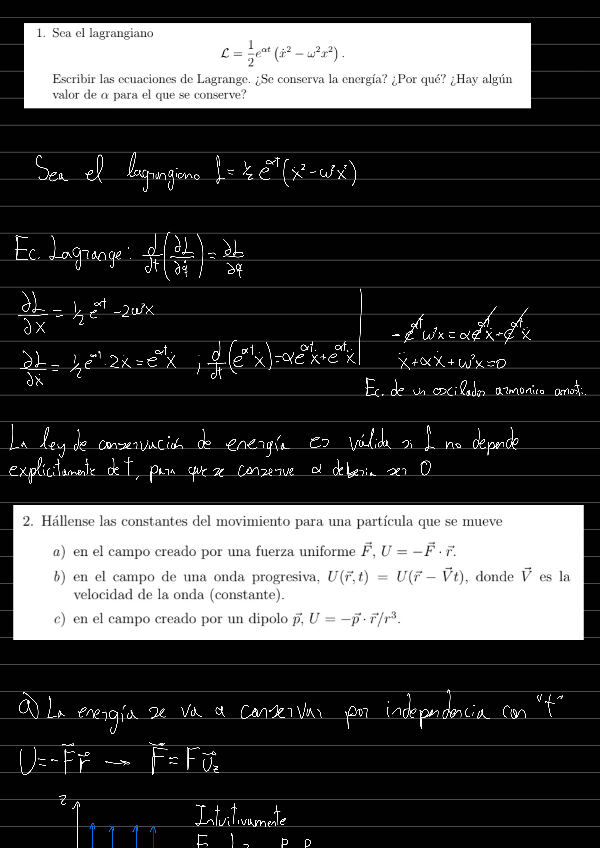 1. Sea el lagrangiano
ℒ = 1/2 e^{αt} (ẋ² − ω²x²) .
Escribir las ecuaciones de Lagrange. ¿Se conserva la energía? ¿Por qué? ¿Hay algún
valor de α para el que se conserve?
Sea el lagrangiano L = ½ e^{αt} (ẋ² − ω²x²)
Ec. Lagrange: d/dt (∂L/∂q̇) = ∂L/∂q
∂L/∂x = ½ e^{αt} − 2ω²x
∂L/∂ẋ = ½ e^{αt} · 2ẋ = e^{αt} ẋ ; d/dt (e^{αt} ẋ) = αe^{αt} ẋ + e^{αt} ẍ
− e^{αt} ω²x = α e^{αt} ẋ + e^{αt} ẍ
ẍ + αẋ + ω²x = 0
Ec. de un oscilador armonico amorti.
La ley de conservación de energía es válida si L no depende
explicitamente de t, para que se conserve α deberia ser 0
2. Hállense las constantes del movimiento para una partícula que se mueve
a) en el campo creado por una fuerza uniforme F⃗, U = −F⃗ · r⃗.
b) en el campo de una onda progresiva, U(r⃗, t) = U(r⃗ − V⃗t), donde V⃗ es la
velocidad de la onda (constante).
c) en el campo creado por un dipolo p⃗, U = −p⃗ · r⃗/r³.
a) La energía se va a conservar por independencia con "t"
U = −F⃗ r⃗ → F⃗ = F u⃗z
z
Intuitivamente